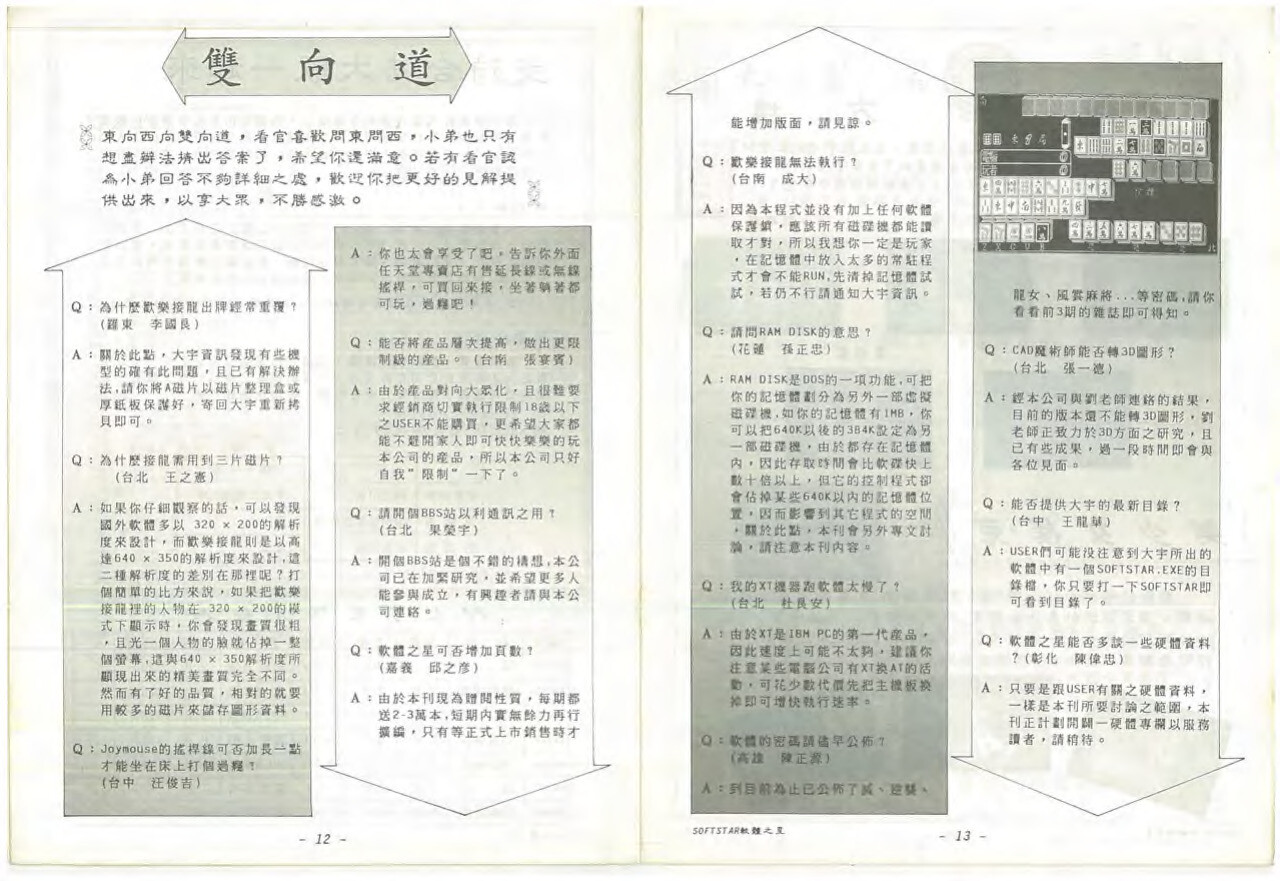 雙向道
東向西向雙向道，看官喜歡問東問西，小弟也只有
想盡辦法擠出答案了，希望你還滿意。若有看官認
為小弟回答不夠詳細之處，歡迎你把更好的見解提
供出來，以享大眾，不勝感激。
Q：為什麼歡樂接龍出牌經常重覆？
(羅東 李國良)
A：關於此點，大宇資訊發現有些機
型的確有此問題，且已有解決辦
法，請你將A磁片以磁片整理盒或
厚紙板保護好，寄回大宇重新拷
貝即可。
Q：為什麼接龍需用到三片磁片？
(台北 王之憲)
A：如果你仔細觀察的話，可以發現
國外軟體多以 320 × 200的解析
度來設計，而歡樂接龍則是以高
達640 × 350的解析度來設計，這
二種解析度的差別在那裡呢？打
個簡單的比方來說，如果把歡樂
接龍裡的人物在 320 × 200的模
式下顯示時，你會發現畫質很粗
，且光一個人物的臉就佔掉一整
個螢幕，這與640 × 350解析度所
顯現出來的精美畫質完全不同。
然而有了好的品質，相對的就要
用較多的磁片來儲存圖形資料。
Q：Joymouse的搖桿線可否加長一點
才能坐在床上打個過癮？
(台中 汪俊吉)
A：你也太會享受了吧，告訴你外面
任天堂專賣店有售延長線或無線
搖桿，可買回來接，坐著躺著都
可玩，過癮吧！
Q：能否將產品層次提高，做出更限
制級的產品。(台南 張宴賓)
A：由於產品對向大眾化，且很難要
求經銷商切實執行限制18歲以下
之USER不能購買，更希望大家都
能不避開家人即可快快樂樂的玩
本公司的產品，所以本公司只好
自我"限制"一下了。
Q：請開個BBS站以利通訊之用？
(台北 果榮宇)
A：開個BBS站是個不錯的構想，本公
司已在加緊研究，並希望更多人
能參與成立，有興趣者請與本公
司連絡。
Q：軟體之星可否增加頁數？
(嘉義 邱之彥)
A：由於本刊現為贈閱性質，每期都
送2-3萬本，短期內實無餘力再行
擴編，只有等正式上市銷售時才
- 12 -
能增加版面，請見諒。
Q：歡樂接龍無法執行？
(台南 成大)
A：因為本程式並沒有加上任何軟體
保護鎖，應該所有磁碟機都能讀
取才對，所以我想你一定是玩家
，在記憶體中放入太多的常駐程
式才會不能RUN，先清掉記憶體試
試，若仍不行請通知大宇資訊。
Q：請問RAM DISK的意思？
(花蓮 孫正忠)
A：RAM DISK是DOS的一項功能，可把
你的記憶體劃分為另外一部虛擬
磁碟機，如你的記憶體有1MB，你
可以把640K以後的384K設定為另
一部磁碟機，由於都存在記憶體
內，因此存取時間會比軟碟快上
數十倍以上，但它的控制程式卻
會佔掉某些640K以內的記憶體位
置，因而影響到其它程式的空間
，關於此點，本刊會另外專文討
論，請注意本刊內容。
Q：我的XT機器跑軟體太慢了？
(台北 杜長安)
A：由於XT是IBM PC的第一代產品，
因此速度上可能不太夠，建議你
注意某些電腦公司有XT換AT的活
動，可花少數代價先把主機板換
掉即可增快執行速率。
Q：軟體的密碼請儘早公佈？
(高雄 陳正源)
A：到目前為止已公佈了滅、逆襲、
龍女、風雲麻將...等密碼，請你
看看前3期的雜誌即可得知。
Q：CAD魔術師能否轉3D圖形？
(台北 張一德)
A：經本公司與劉老師連絡的結果，
目前的版本還不能轉3D圖形，劉
老師正致力於3D方面之研究，且
已有些成果，過一段時間即會與
各位見面。
Q：能否提供大宇的最新目錄？
(台中 王龍華)
A：USER們可能沒注意到大宇所出的
軟體中有一個SOFTSTAR.EXE的目
錄檔，你只要打一下SOFTSTAR即
可看到目錄了。
Q：軟體之星能否多談一些硬體資料
？(彰化 陳偉忠)
A：只要是跟USER有關之硬體資料，
一樣是本刊所要討論之範圍，本
刊正計劃開闢一硬體專欄以服務
讀者，請稍待。
SOFTSTAR軟體之星
- 13 -